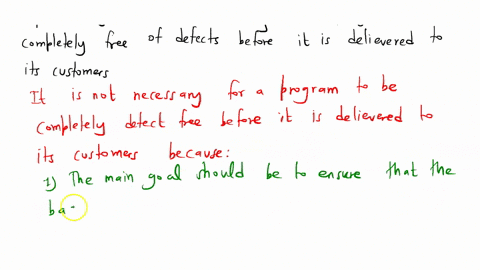 completely free of defects before it is delievered to
its customers
It is not necessary for a program to be
completely detect free before it is delievered to
its customers because:
1) The main goal should be to ensure that the
ba